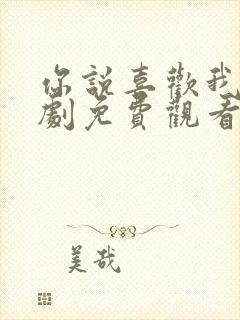 你說喜歡我
劇免費觀看
美哉